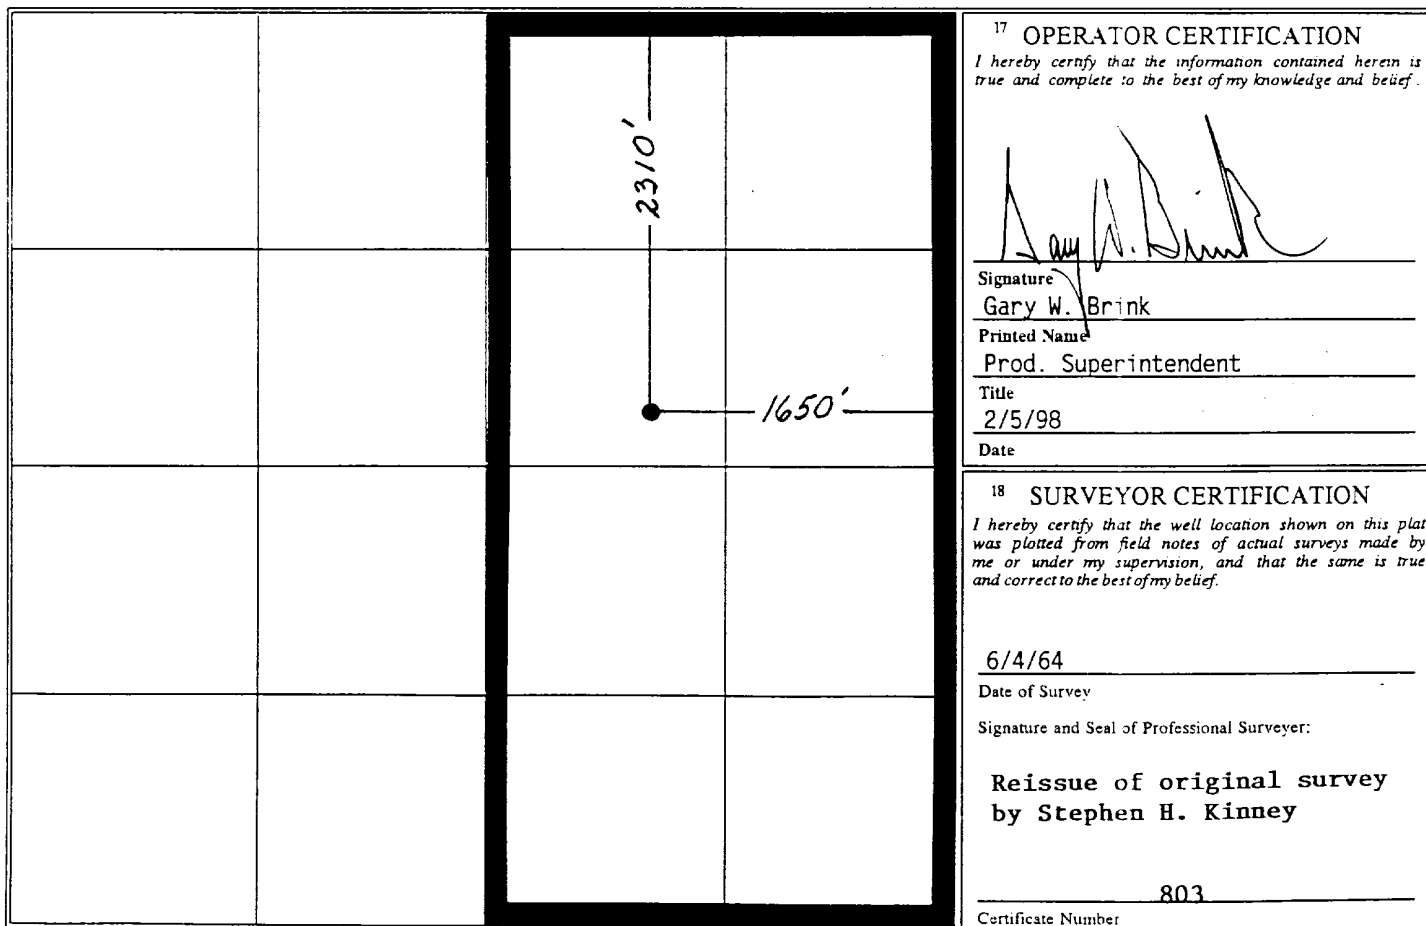 2310'
1650'
17 OPERATOR CERTIFICATION
I hereby certify that the information contained herein is
true and complete to the best of my knowledge and belief.
Gary W. Brink
Signature
Gary W. Brink
Printed Name
Prod. Superintendent
Title
2/5/98
Date
18 SURVEYOR CERTIFICATION
I hereby certify that the well location shown on this plat
was plotted from field notes of actual surveys made by
me or under my supervision, and that the same is true
and correct to the best of my belief.
6/4/64
Date of Survey
Signature and Seal of Professional Surveyer:
Reissue of original survey
by Stephen H. Kinney
803
Certificate Number